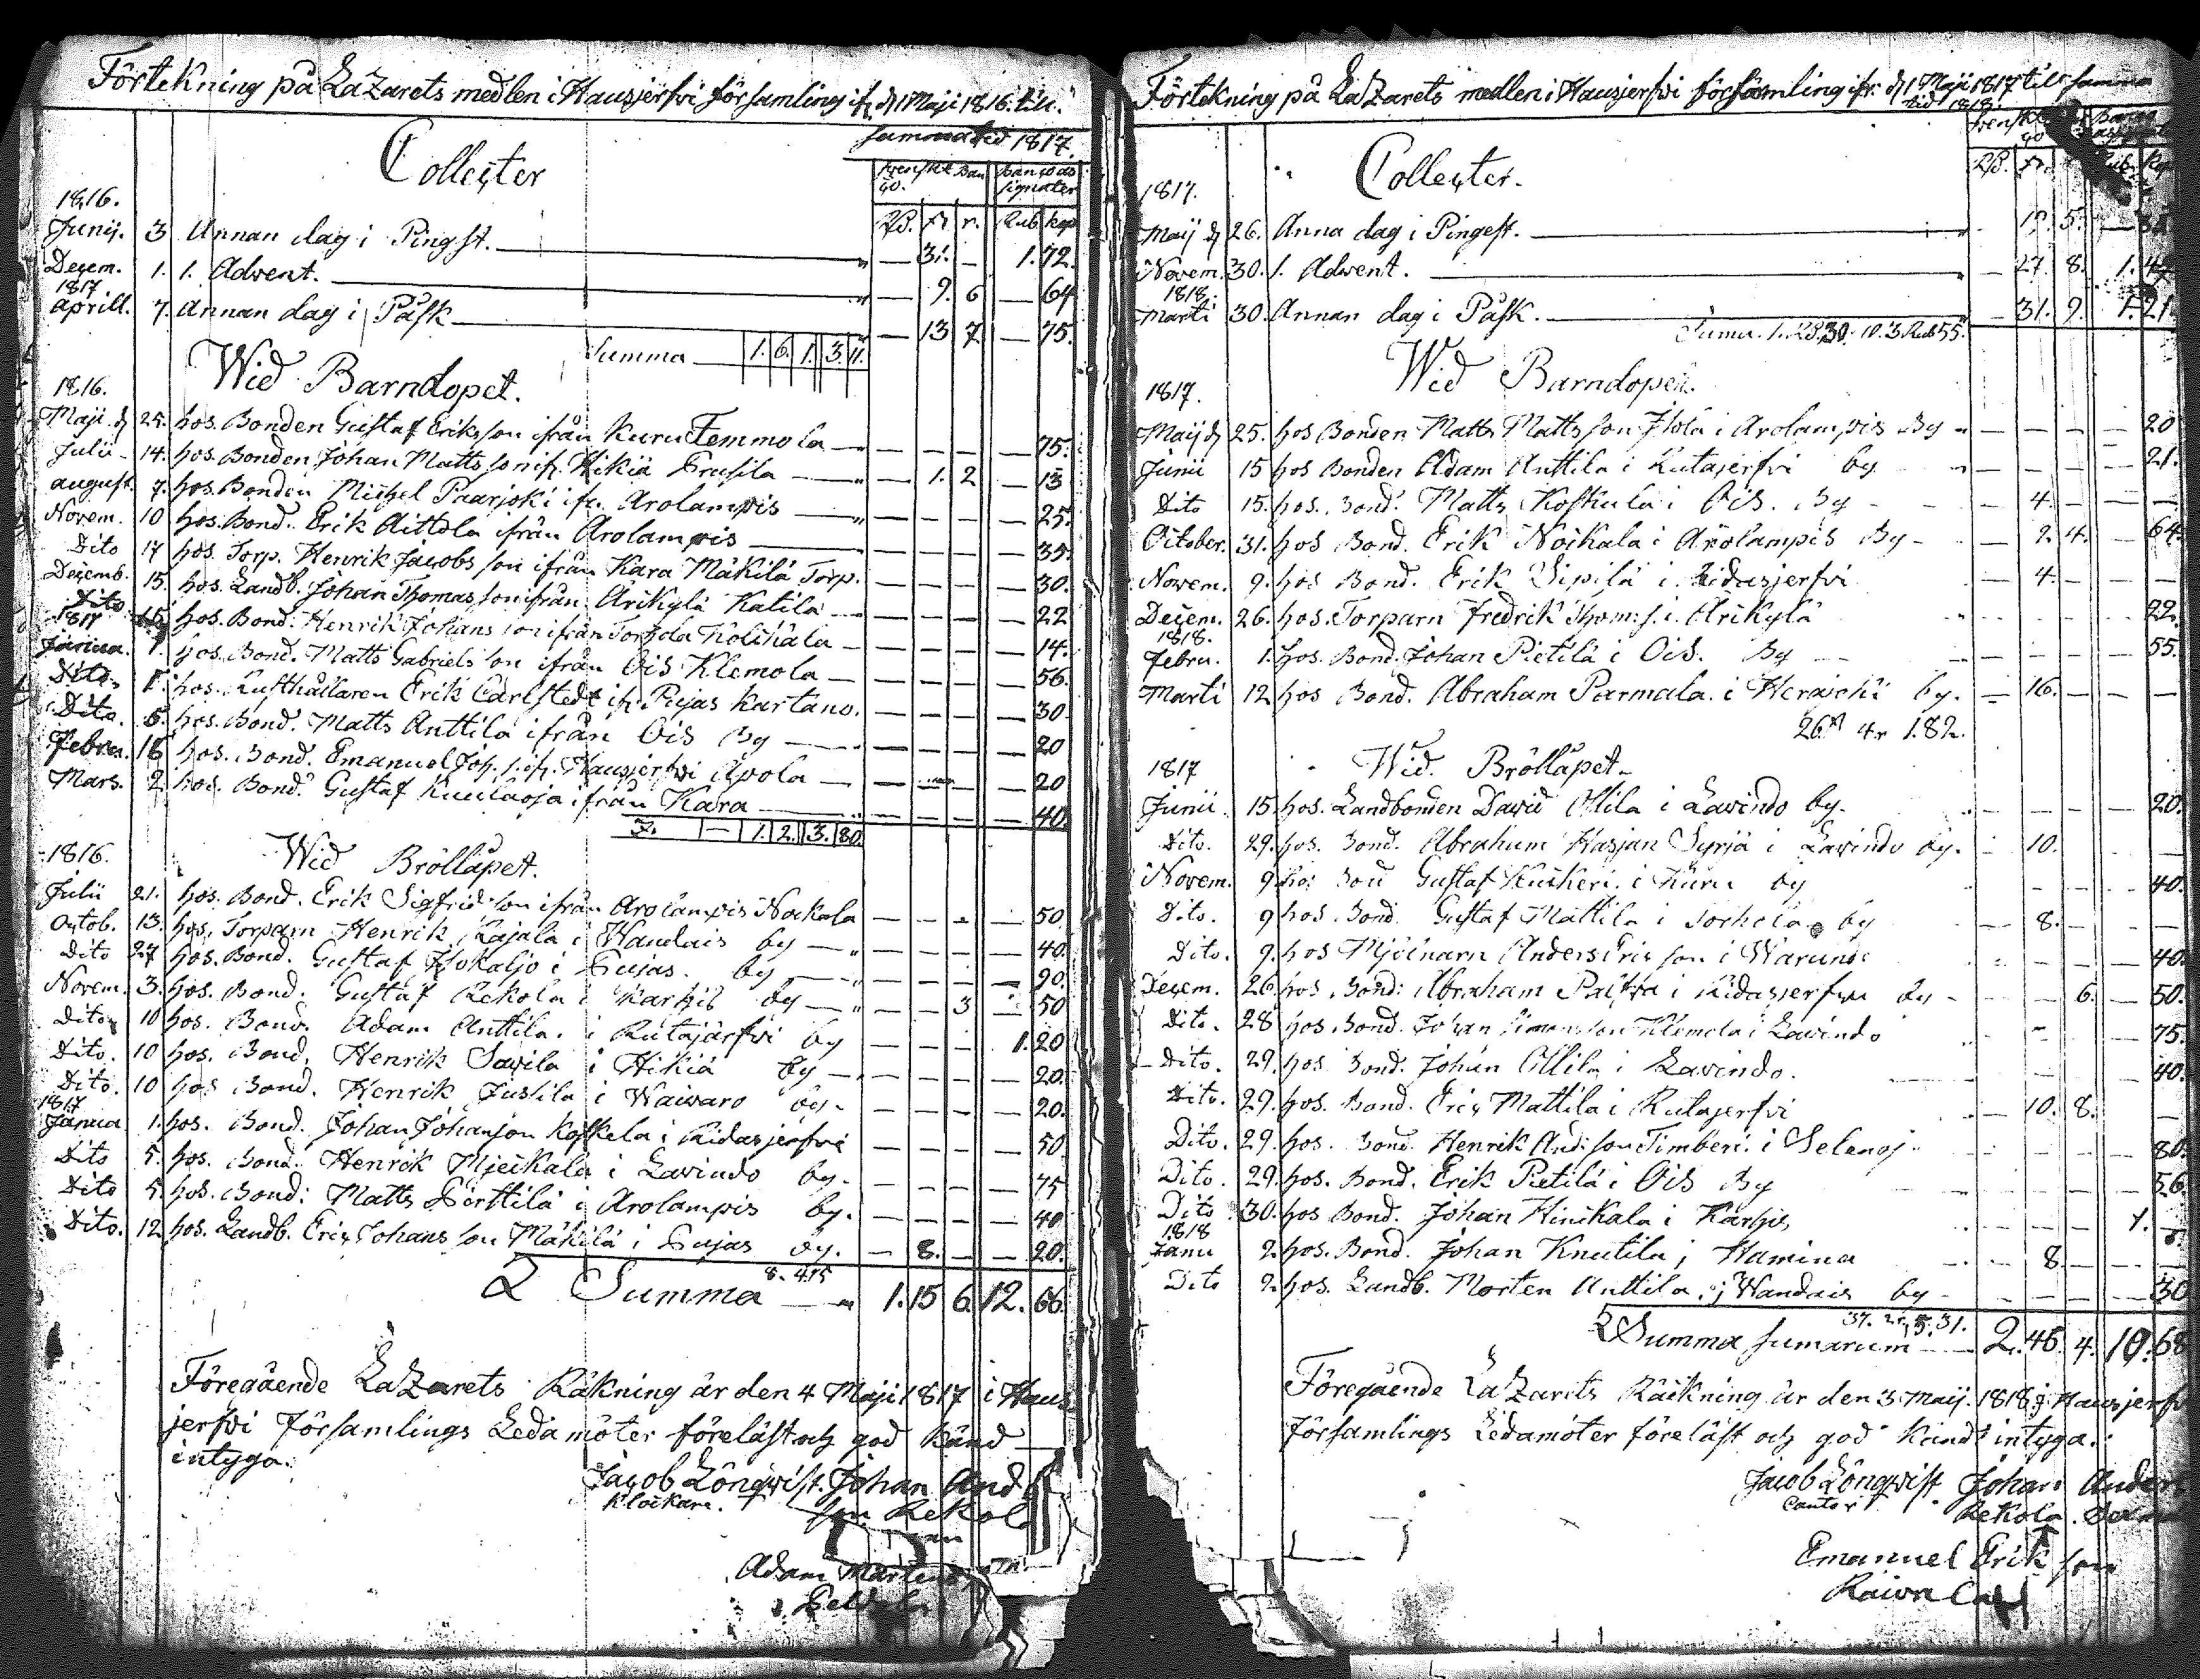 Förtekning på LaZarets medlen i Hausjerfvi församling ifr. d 1 Maji 1816. till
samma tid 1817.
Collecter
Svenskt Ban
go.
Banco as
signater
RB. ß r. Rub kop
1816.
Junij. 3 Annan dag i Pingst. — 31. — 1.72.
Decem. 1. 1. Advent. — 9. 6 — 64
1817
Aprill. 7. Annan dag i Påsk — 13 7 — 75.
Summa 1. 6. 1. 3. 11.
Wid Barndopet.
1816.
Maji d 25. hos. Bonden Gustaf Eriksson ifrån Kuru Temmola — 75.
Julii 14. hos. Bonden Johan Mattsson ifr. Hikiä — 1. 2 — 13
August. 7. hos. Bonden Michel Paarjoki ifr. Arolampis — 25.
Novem. 10 hos. Bond. Erik Aittola ifrån Arolampis — 35.
Dito 17 hos. Torp. Henrik Jacobsson ifrån Kara Mäkilä Torp. — 30.
Decemb. 15. hos. Landb. Johan Thomasson ifrån Arikylä Katila — 22
Dito 15 hos. Bond. Henrik Johansson ifrån Torhola Kolikala — 14.
1817
Janua. 1. hos. Bond. Matts Gabrielsson ifrån Ois Klemola — 56.
Dito. hos. Lusthållaren Erik Carlstedt ifr. Pujas Kartano. — 30.
Dito. 6. hos. Bond. Matts Anttila ifrån Ois By — 20
Febru. 16 hos. Bond. Emanuel Joh. s. ifr. Hausjerfvi Arola — 20
Mars. 2. hos. Bond. Gustaf Kuulaoja ifrån Kara — 40.
— 1. 2. 3. 80.
Wid Bröllåpet.
1816.
Julii 21. hos. Bond. Erik Sigfridson ifrån Arolampis Nockala — 50.
Octob. 13. hos. Torparn Henrik Rajala i Handais by — 40.
Dito 27 hos. Bond. Gustaf Jokaljo i Pujas. by — 20.
Novem. 3. hos. Bond. Gustaf Rekola i Karhis by — 3 — 50
Dito 10 hos. Bond. Adam Anttila. i Rutajärfvi by — 1. 20
Dito. 10 hos. Bond. Henrik Savila i Hikiä by — 20.
Dito. 10 hos. Bond. Henrik Jussila i Waivaro by. — 20.
1817
Janua 1. hos. Bond. Johan Johanson Koskela i Ridasjerfvi — 50
Dito 5. hos. Bond. Henrik Mjeikala i Lavindo by. — 75
Dito 5. hos. Bond: Matts Pirttilä i Arolampis by. — 40
Dito. 12. hos. Landb. Eric Johansson Mäkilä i Pujas by. — 8. — 20.
8. 4.15
Summa — 1. 15 6. 12. 66.
Föregående LaZarets Räkning är den 4 Maji 1817 i Haus
jerfvi Församlings Ledamöter föreläst och god Känd
intyga.
Jacob Lönqvist. Johan And
Klockare. son Rekola
Adam Martens
Förtekning på LaZarets medlen i Hausjerfvi församling ifr: d 1 Maji 1817 till samma
tid 1818.
Collecter.
1817.
Maij d 26. Anna dag i Pingest. — 19. 5. —
Novem. 30. 1. Advent. — 27. 8. 1.
1818.
Marti 30. Annan dag i Påsk. — 31. 9. 1. 21.
Suma. 1. RB. 30. 10. 3. Rub 55.
Wid Barndopet.
1817.
Maij d 25. hos Bonden Matts Mattsson Ilola i Arolampis By — 20
Junii 15 hos Bonden Adam Anttila i Rutajerfvi by — 21.
Dito 15. hos. Bond. Matts Koskula i Ois. By — 4. —
October. 31. hos Bond. Erik Noikala i Arolampis By — 2. 4. — 64.
Novem. 9. hos Bond. Erik Sipilä i. Ridasjerfvi — 4. —
Decem. 26. hos. Torparn Fredrik Thom: s. i. Arikylä — 22.
1818.
Febru. 1. hos. Bond. Johan Pietilä i Ois. By — 55.
Marti 12 hos Bond. Abraham Parmala. i Herajoki by. — 16. —
26 ß 4 r 1.82.
Wid. Bröllåpet
1817
Junii 15. hos. Landbonden David Ollila i Lavindo by. — 20.
Dito. 29. hos. Bond. Abraham Hasjan Syrjä i Lavindo by. — 10. —
Novem. 9. hos Bon Gustaf i Kuru by — 40.
Dito. 9 hos. Bond. Gustaf Mattila i Torhola by — 8. —
Dito. 9. hos Mjölnarn Anders Ericson i — 40.
Decem. 26 hos Bond: Abraham i Ridasjerfvi by — 6. — 50.
Dito. 28 hos. Bond. Johan Simonsson Klemola i Lavindo — 75.
Dito. 29. hos. Bond. Johan Ollila i Lavindo. — 40.
Dito. 29. hos. Bond. Eric Mattila i Rutajerfvi — 10. 8. —
Dito. 29. hos. Bond. Henrik And: son Timberi. i Selenoj. — 80.
Dito. 29. hos. Bond. Erik Pietilä i Ois By — 56.
Dito 30. hos Bond. Johan Hinikala i Karhis — 1. —
1818
Janu 2. hos. Bond. Johan Knutila i Hamina — 8. —
Dito 2. hos. Landb. Morten Anttila. i Handais by — 30
Summa sumarum — 2. 46. 4. 10. 68
Föregående LaZarets Räckning är den 3. Maij. 1818 i Hausjerfvi
Församlings Ledamöter föreläst och god Känd intyga.
Jacob Lönqvist Johan Ander
Cantor Rekola.
Emanuel Erik son